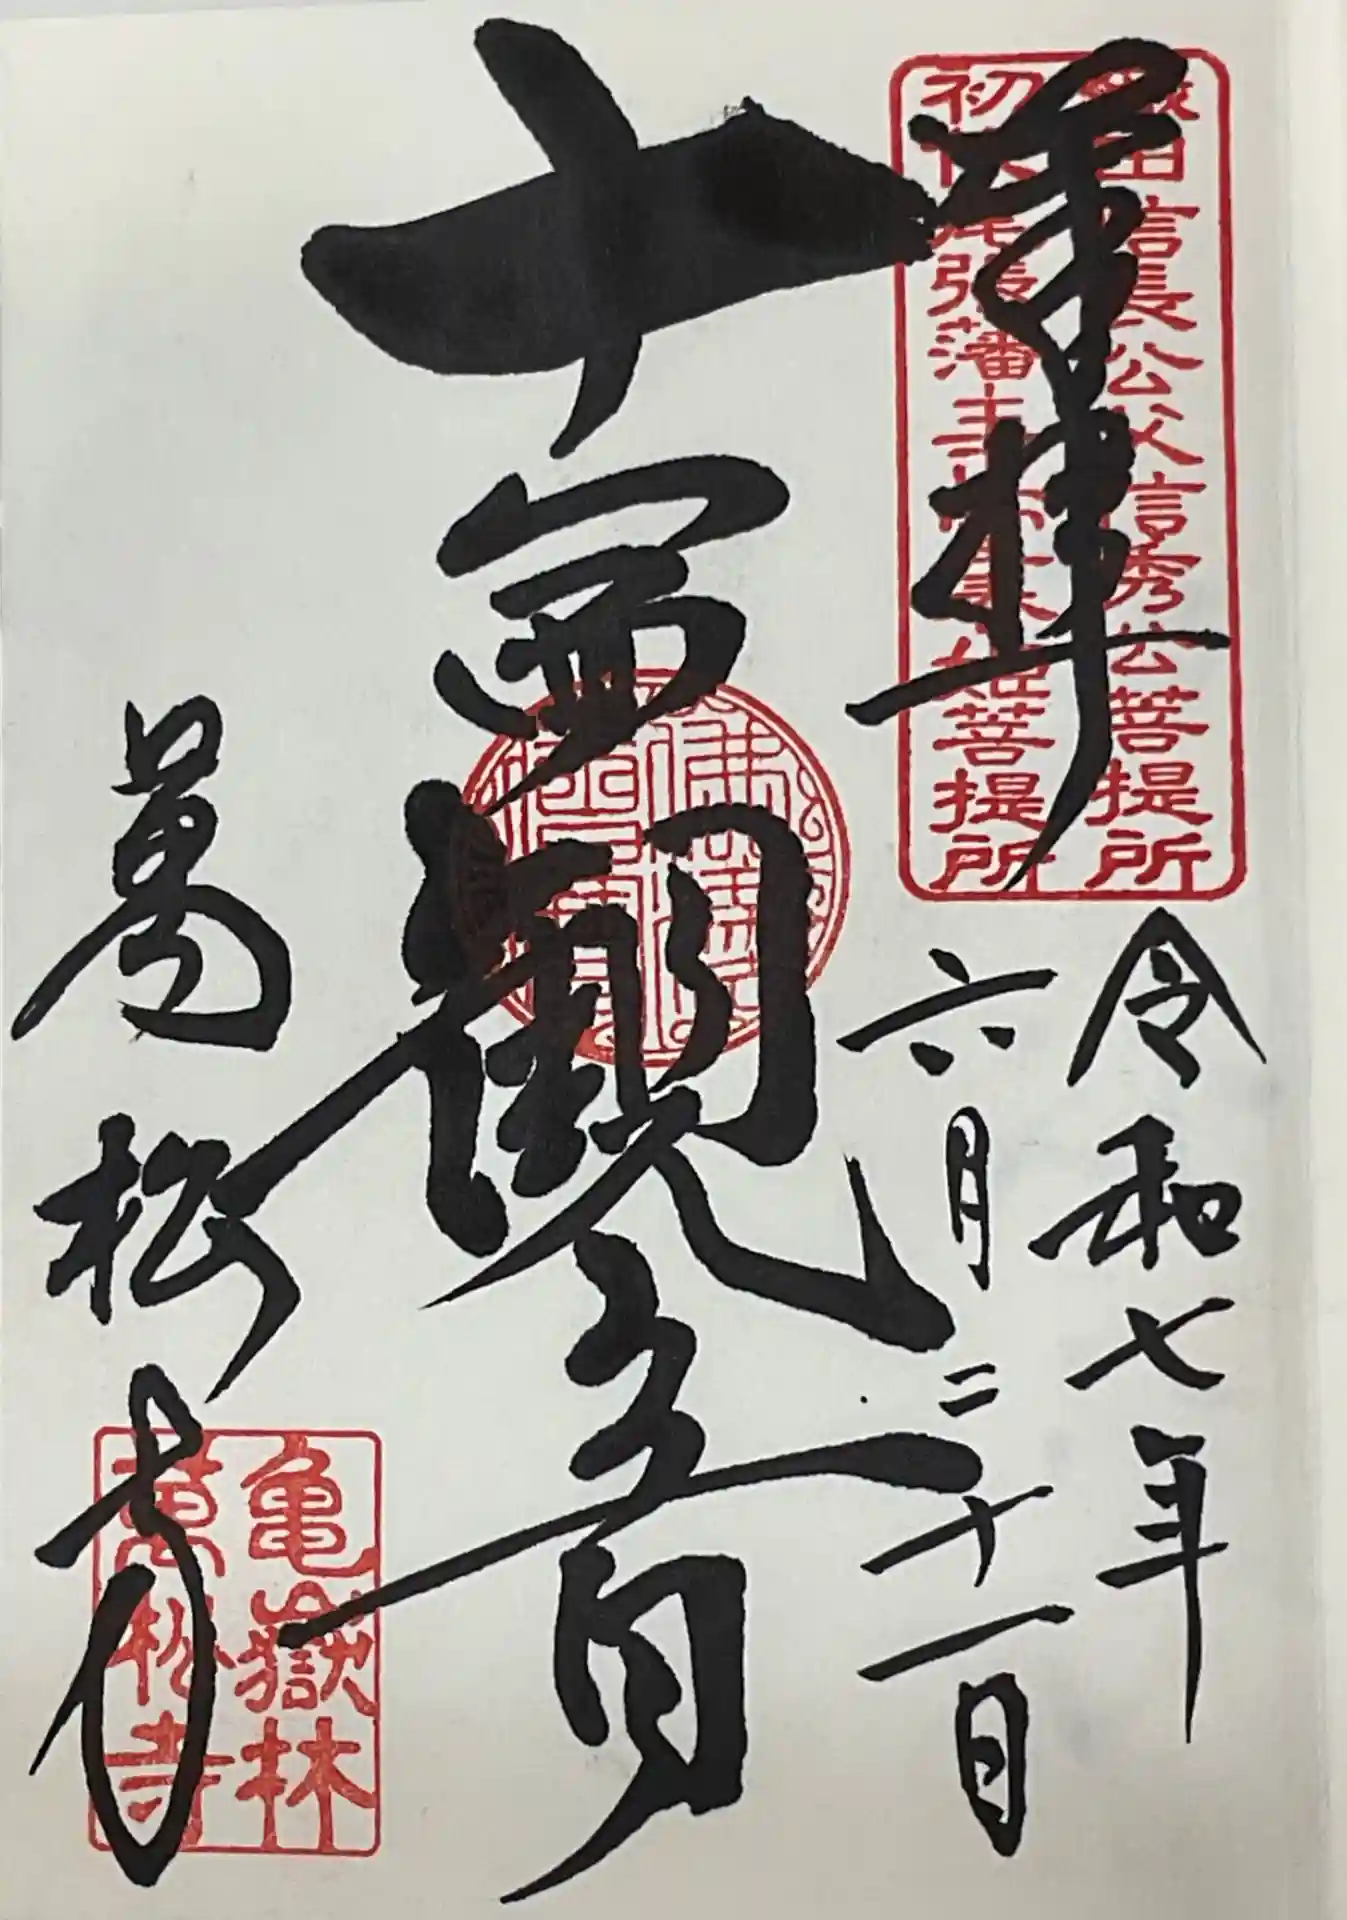 奉拝
織田信長公父信秀公菩提所
初代尾張藩主
姫菩提所
令和七年
六月二十一日
十一面観音
萬松寺
亀嶽林
萬松寺